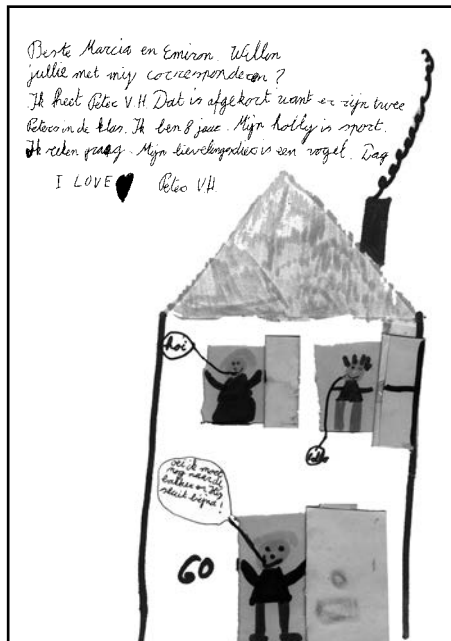 Beste Marcia en Emiron. Willen
jullie met mij corresponderen ?
Ik heet Peter V.H. Dat is afgekort want er zijn twee
Peters in de klas. Ik ben 8 jaar. Mijn hobby is sport.
Ik reken graag. Mijn lievelingsdier is een vogel. Dag
I LOVE Peter V.H.
hoi
oei ik moet
nog naar de
bakker en hij
sluit bijna!
60